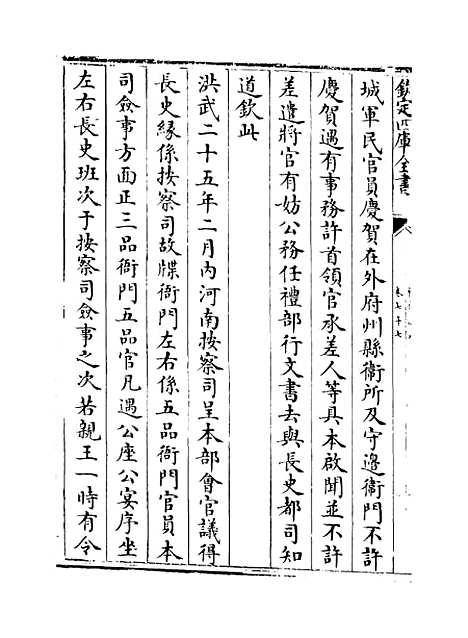 欽定四庫全書
卷七十七
城軍民官員慶賀在外府州縣衛所及守邊衛門不許
慶賀遇有事務許首領官承差人等具本啟聞並不許
差遣將官有妨公務任禮部行文書去與長史都司知
道欽此
洪武二十五年二月內河南按察司呈本部會官議得
長史縁係按察司故牒衙門左右係五品衙門官員本
司僉事方面正三品衙門五品官凡遇公座公宴序坐
左右長史班次于按察司僉事之次若親王一時有令